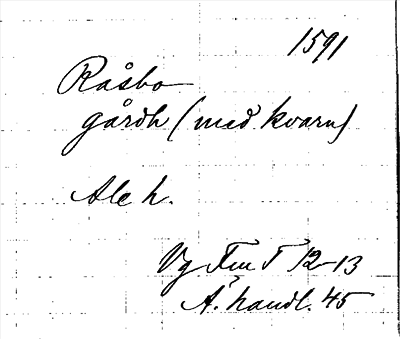 1591
Råsbo
gårdh (med kvarn)
Ale h.
Vg Fm T 12-13
Ä. handl. 45